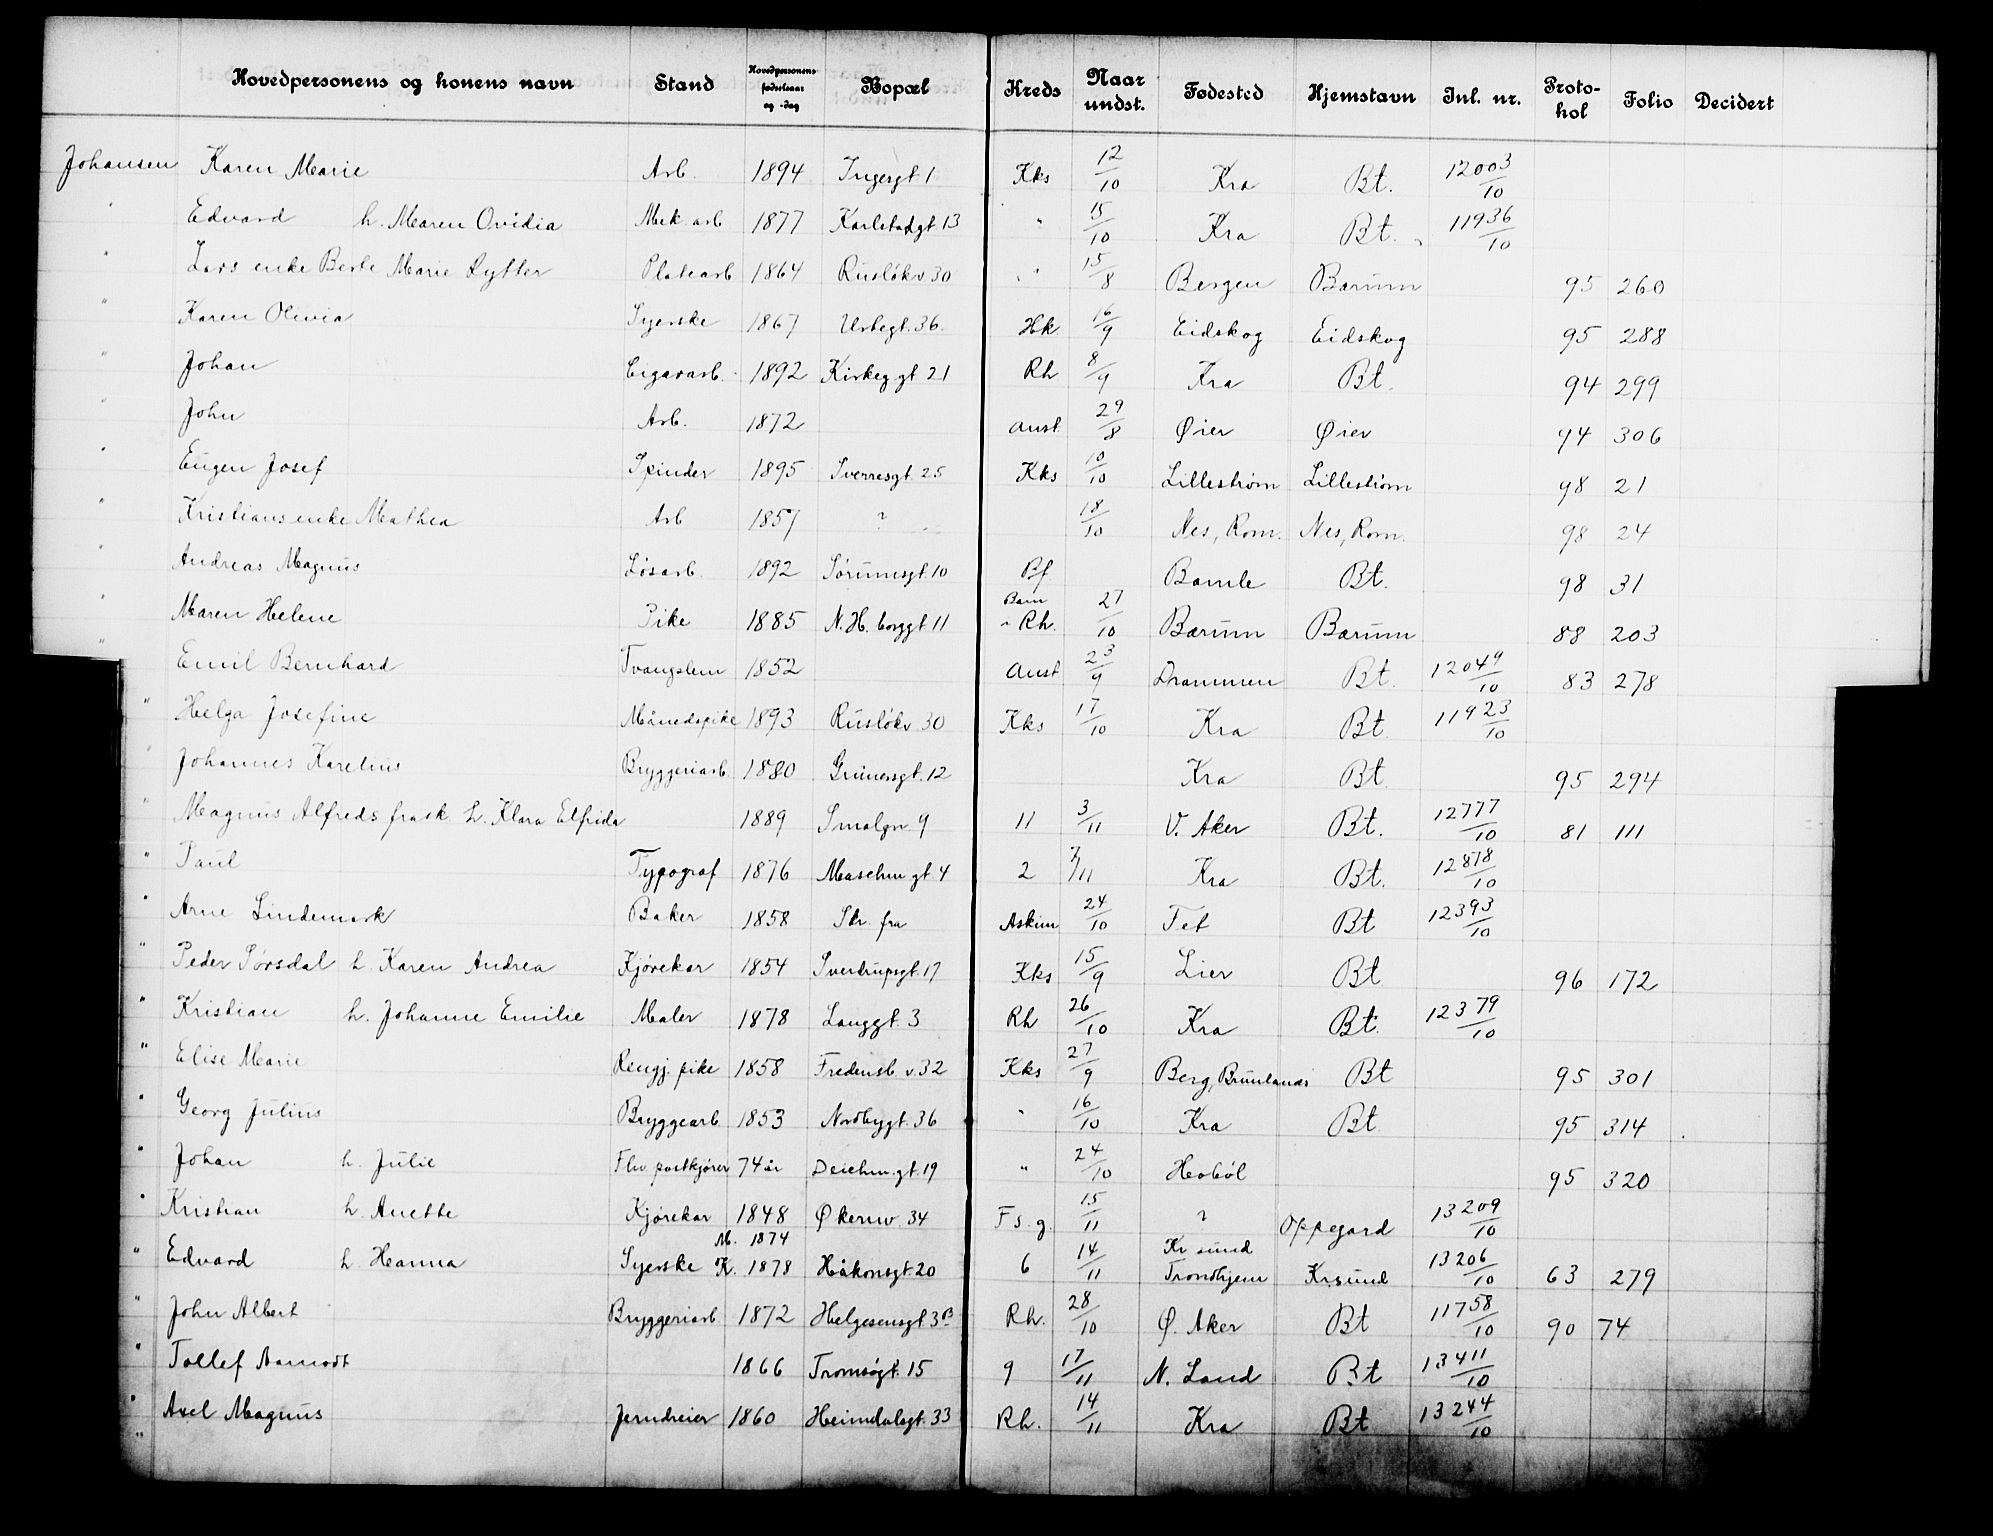 Hovedpersonens og konens navn Stand Hovedpersonens fødselsaar og -dag Bopæl Kreds Naar undst. Fødested Hjemstavn Inl. nr. Protokol Folio Decidert
Johansen Karen Marie Arb. 1894 Ingesgt 1 Kks 12/10 Kra Bt. 12003/10
" Edvard h. Maren Ovidia Mek arb 1877 Karlstadgt 13 " 15/10 Kra Bt. 11936/10
" Lars enke Berte Marie Rytter Platearb 1864 Rusløkv 30 " 15/8 Bergen Bærum 95 260
" Karen Olivia Syerske 1867 Urtegt. 36. Hk 16/9 Eidskog Eidskog 95 288
" Johan Cigararb. 1892 Kirkeggt 21 Rh 8/9 Kra Bt. 94 299
" John Arb. 1872 Anst. 29/8 Øier Øier 94 306
" Eugen Josef Spinder 1895 Sverresgt. 25 Kks 10/10 Lillestrøm Lillestrøm 98 21
" Kristians enke Mathea Arb 1857 ? 18/10 Nes, Rom. Nes, Rom. 98 24
" Andreas Magnus Løsarb. 1892 Sørumsgt. 10 Pf Bamle Bt. 98 31
" Maren Helene Pike 1885 N. H. borggt 11 Barn i Rh. 27/10 Bærum Bærum 88 203
" Emil Bernhard Tvangslem 1852 Anst 23/9 Drammen Bt. 12049/10 83 278
" Helga Josefine Månedspike 1893 Rusløkv 30 Kks 17/10 Kra Bt. 11923/10
" Johannes Karelius Bryggeriarb. 1880 Grünersgt. 12 Kra Bt. 95 294
" Magnus Alfreds frask. h. Klara Elfrida 1889 Smalgn 9 11 3/11 V. Aker Bt. 12777/10 81 111
" Paul Typograf 1876 Maschm gt. 4 2 7/11 Kra Bt. 12878/10
" Arne Lindemark Baker 1858 Skr. fra Askim 24/10 Fet Bt 12393/10
" Peder Sørsdal h. Karen Andrea Kjørekar 1854 Sverdrupsgt. 17 Kks 15/9 Lier Bt 96 172
" Kristian h. Johanne Emilie Maler 1878 Langgt. 3 Rh 26/10 Kra Bt. 12379/10
" Elise Marie Rengj. pike 1858 Fredensb. v. 32 Kks 27/9 Berg, Brunlanæs Bt 95 301
" Georg Julius Bryggearb 1853 Nordbygt. 36 " 16/10 Kra Bt 95 314
" Johan h. Julie Fhv. postkjører 74 år Deichm. gt. 19 " 24/10 Hobøl 95 320
" Kristian h. Anette Kjørekar 1848 Økernv. 34 Fs. g. 15/11 ? Oppegård 13209/10
" Edvard h. Hanna Syerske M. 1874 K. 1878 Håkonsgt. 20 6 14/11 Kr sund Trondhjem Krsund 13206/10 63 279
" John Albert Bryggeriarb 1872 Helgesensgt 3B Rh. 28/10 Ø. Aker Bt 11758/10 90 74
" Tollef Aamodt 1866 Tromsøgt. 15 9 17/11 N. Land Bt 13411/10
" Axel Magnus Jerndreier 1860 Heimdalsgt. 33 Rh. 14/11 Kra Bt 13244/10
"